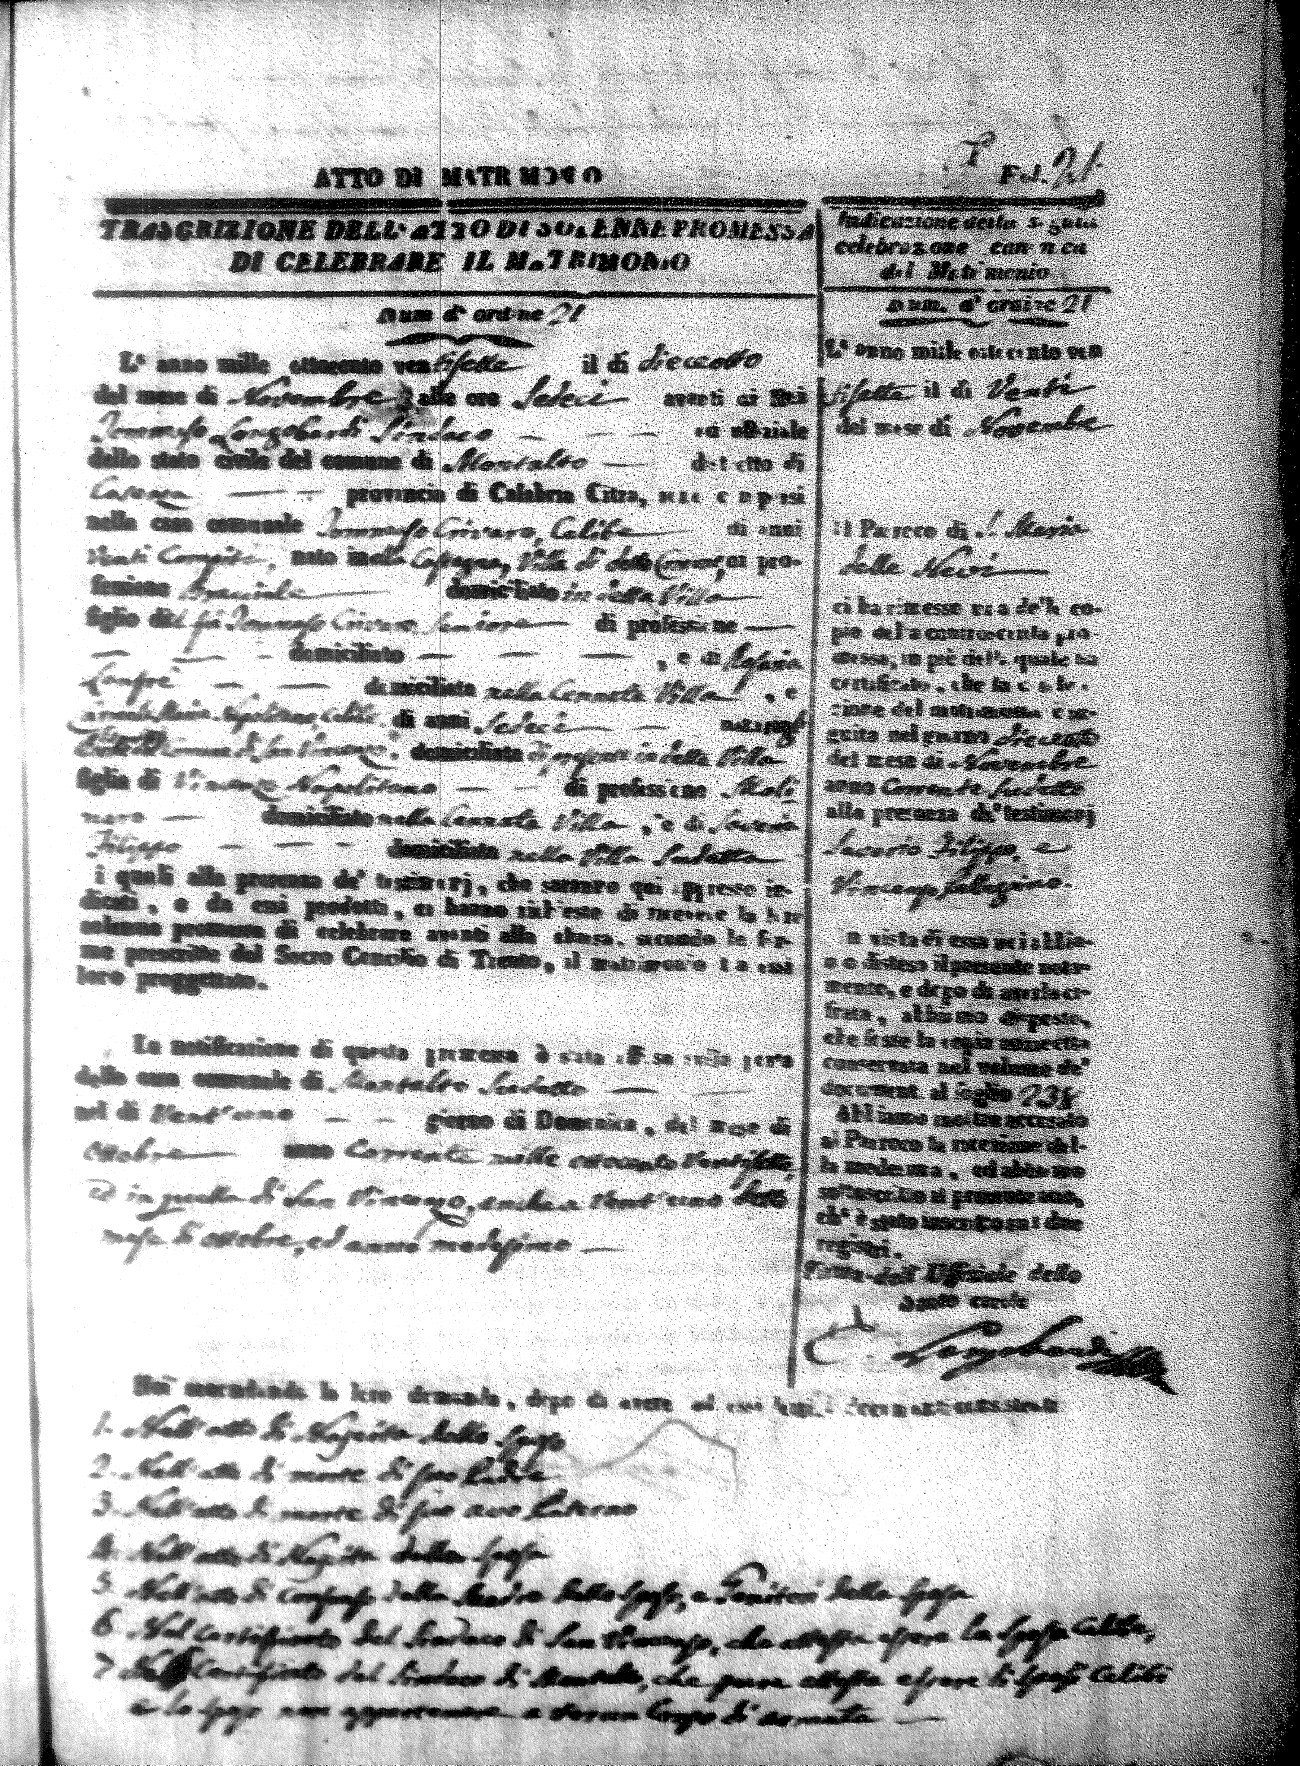 ATTO DI MATRIMONIO
Fol. 21
TRASCRIZIONE DELL'ATTO DI SOLENNE PROMESSA
DI CELEBRARE IL MATRIMONIO
Num d'ordine 21
L'anno mille ottocento ventisette il di dieciotto
del mese di Novembre alle ore Sedeci avanti di Noi
Tommaso Longobardi Sindaco ed uffiziale
dello stato civile del comune di Montalto distretto di
Cosenza provincia di Calabria Citra, sono comparsi
nella casa comunale Tommaso Crivaro, Celibe di anni
Venti Compiti, nato in Villa di detto Comune, di pro-
fessione Bracciale domiciliato in detta Villa
figlio del fu Tommaso Crivaro Seniore di professione
domiciliato , e di
domiciliata nella Cennata Villa , e
Maria Napolitano, Celibe, di anni Sedeci nata
di San Vincenzo, domiciliata in detta Villa
figlia di Vincenzo Napolitano di professione Moli
naro domiciliato nella Cennata Villa , e di
Filippo domiciliata nella Villa Sudetta
i quali alla presenza de' testimonj, che saranno qui appresso in-
dicati, e da essi prodotti, ci hanno richiesto di ricevere la loro
solenne promessa di celebrare avanti alla chiesa, secondo le for-
me prescritte dal Sacro Concilio di Trento, il matrimonio tra essi
loro progettato.
La notificazione di questa promessa è stata affissa sulla porta
della casa comunale di Montalto Sudetto
nel di Vent'uno giorno di Domenica, del mese di
Ottobre anno Corrente mille ottocento Ventisette,
ed in quella di San Vincenzo, anche a Vent'uno detto
mese di ottobre, ed anno medesimo
Indicazione della seguita
celebrazione canonica
del Matrimonio
Num. d'ordine 21
L'anno mille ottocento ven
tisette il di Venti
del mese di Novembre
Il Parroco di S. Maria
della Nevi
ci ha rimesso una delle co-
pie della controscritta pro-
messa, in piè della quale ha
certificato, che la celebra-
zione del matrimonio è se-
guita nel giorno dieciotto
del mese di Novembre
anno Corrente Sudetto
alla presenza de' testimonj
Saverio Filippo, e
Vincenzo Pellegrino.
In vista di essa noi abbia-
mo disteso il presente nota-
mento, e dopo di averla ci-
frata, abbiamo disposto,
che fosse la copia anzidetta
conservata nel volume de'
documenti al foglio 238
Abbiamo inoltre accusato
al Parroco la recezione del-
la medesima, ed abbiamo
sottoscritto il presente atto,
ch'è stato inscritto sui due
registri.
Firma dell'Uffiziale dello
Stato civile
Longobardi
Noi secondando la loro domanda, dopo di avere ad essi letti i documenti consistenti
1. Nell'atto di Nascita dello sposo
2. Nell'atto di morte di suo Padre
3. Nell'atto di morte di suo avo Paterno
4. Nell'atto di Nascita della sposa
5. Nell'atto di Consenso della Madre dello sposo, e Genitori della sposa
6. Nel Certificato del Sindaco di San Vincenzo, che attesta essere la sposa Celibe,
7. Nel Certificato del Sindaco di Montalto, che pure attesta essere li sposi Celibi
e lo sposo non appartenere a verun Corpo di armata